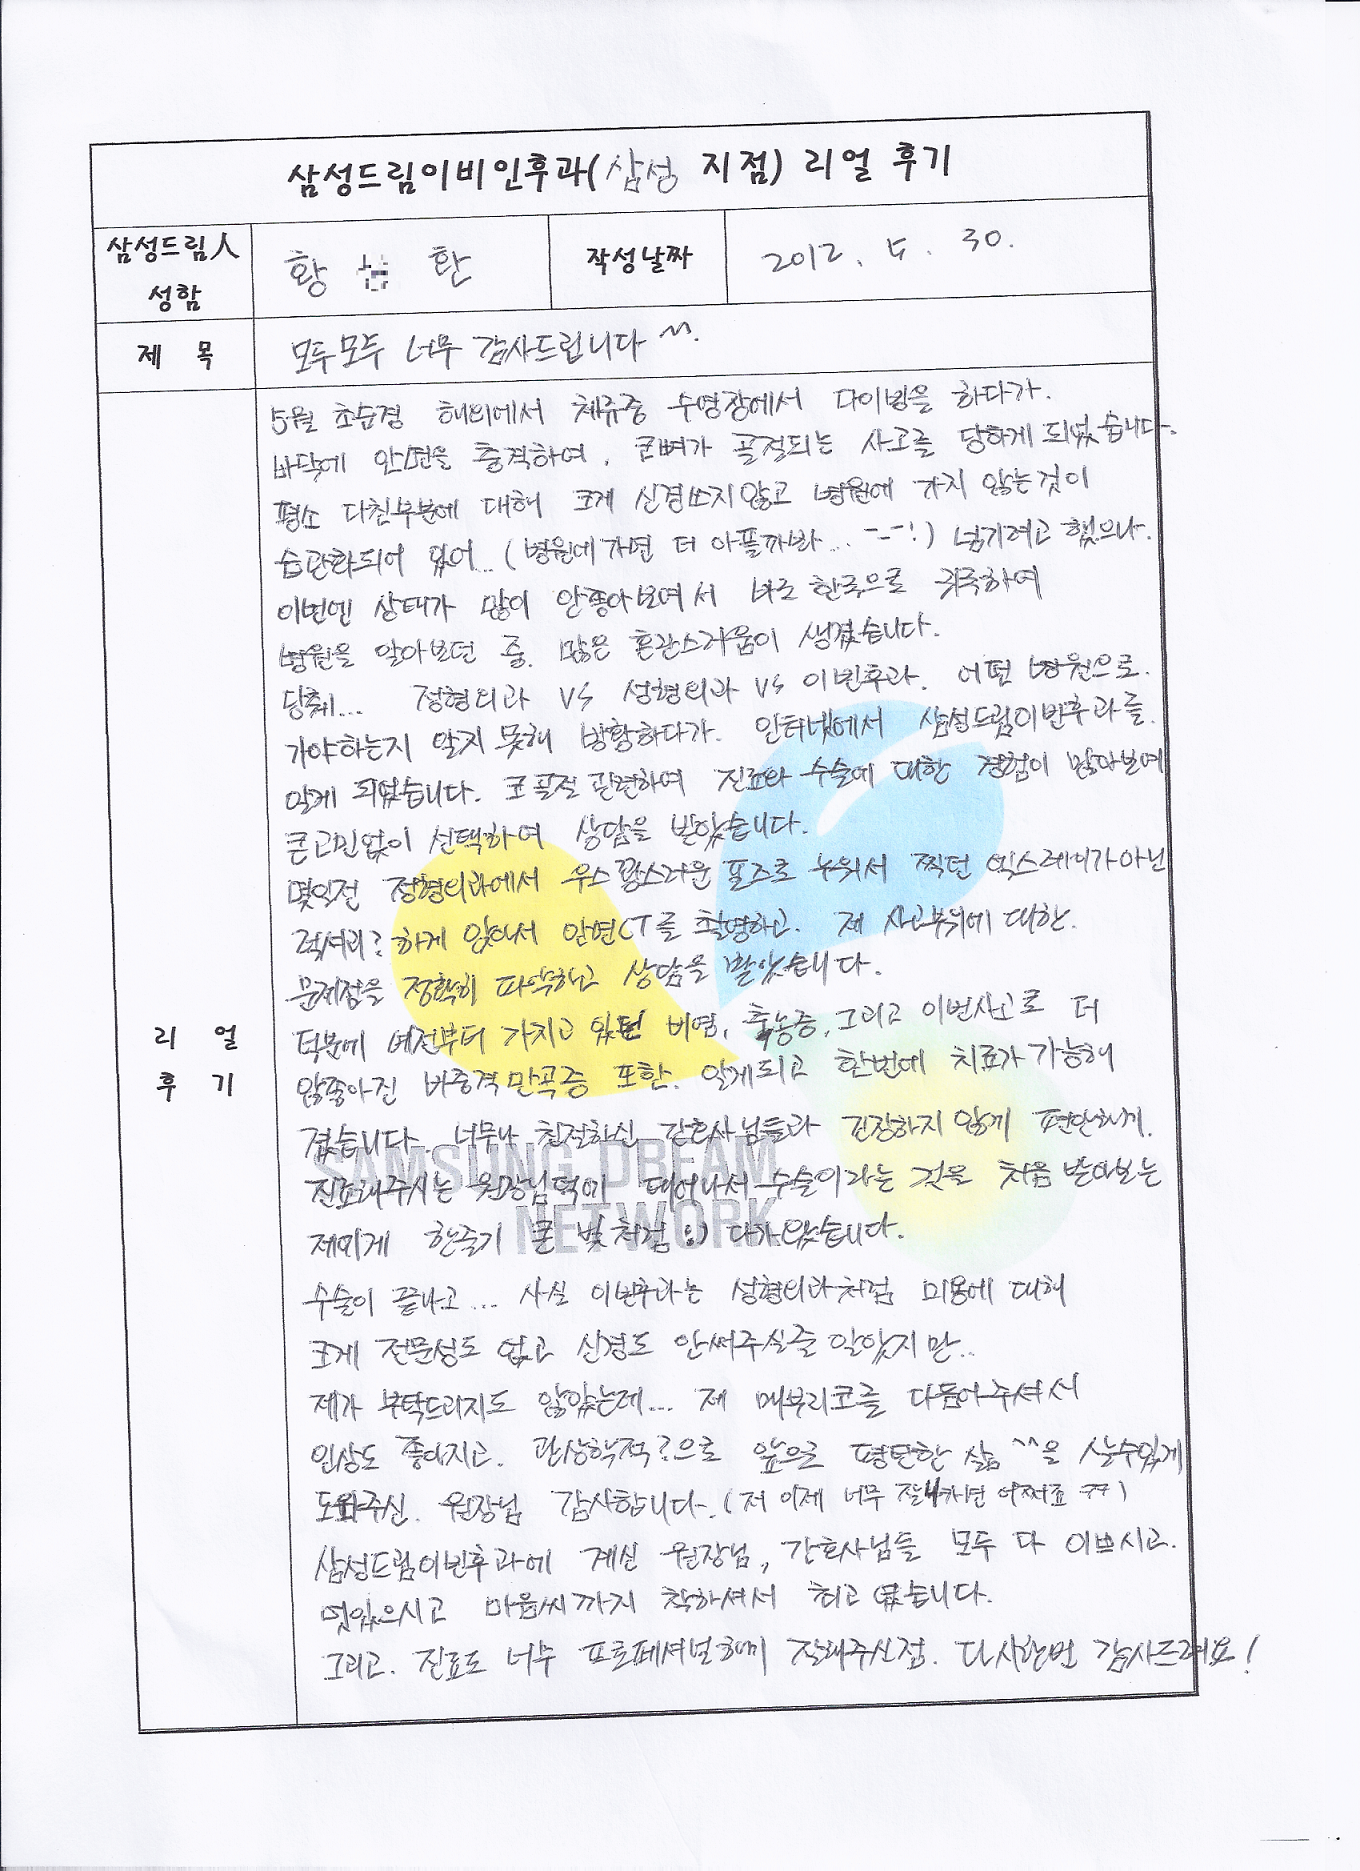 삼성드림이비인후과(삼성 지점) 리얼 후기
삼성드림人
성함
황 환
작성날짜
2012. 5. 30.
제 목
모두모두 너무 감사드립니다 ^^.
리 얼
후 기
5월 초순경 해외에서 체류중 수영장에서 다이빙을 하다가.
바닥에 안면을 충격하여, 코뼈가 골절되는 사고를 당하게 되었습니다.
평소 다친부분에 대해 크게 신경쓰지않고 병원에 가지 않는것이
습관화되어 있어... (병원에가면 더 아플까봐... ㅡㅡ!) 넘기려고 했으나.
이번엔 상태가 많이 안좋아보여서 바로 한국으로 귀국하여
병원을 알아보던 중. 많은 혼란스러움이 생겼습니다.
당췌... 정형외과 VS 성형외과 VS 이빈후과. 어떤 병원으로.
가야하는지 알지 못해 방황하다가. 인터넷에서 삼성드림이빈후과를.
알게 되었습니다. 코골절 관련하여 진료와 수술에 대한 경험이 많아보여
큰고민없이 선택하여 상담을 받았습니다.
몇일전 정형외과에서 우스꽝스러운 포즈로 누워서 찍던 엑스레이가아닌
럭셔리? 하게 앉아서 안면CT를 촬영하고. 제 사고부위에 대한.
문제점을 정확히 파악하고 상담을 받았습니다.
덕분에 예전부터 가지고 있던 비염, 축농증, 그리고 이번사고로 더
않좋아진 비중격만곡증 포한. 알게되고 한번에 치료가 가능해
졌습니다. 너무나 친절하신 간호사님들과 긴장하지 않게 편안하게.
진료해주시는 원장님덕에 태어나서 수술이라는 것을 처음 받아보는
제에게 한줄기 큰 빛처럼 :) 다가왔습니다.
수술이 끝나고... 사실 이빈후과는 성형외과처럼 미용에 대해
크게 전문성도 없고 신경도 안써주실줄 알았지만..
제가 부탁드리지도 않았는데... 제 매부리코를 다듬어주셔서
인상도 좋아지고. 관상학적?으로 앞으로 평탄한 삶 ^^을 살수있게
도와주신. 원장님 감사합니다. (저 이제 너무 잘나가면 어쩌죠 ㅋㅋ)
삼성드림이빈후과에 계신 원장님, 간호사님들 모두 다 이쁘시고.
멋있으시고 마음씨까지 착하셔서 최고 였습니다.
그리고. 진료도 너무 프로페셔널하게 잘해주신점. 다시한번 감사드려요!
SAMSUNG DREAM
NETWORK